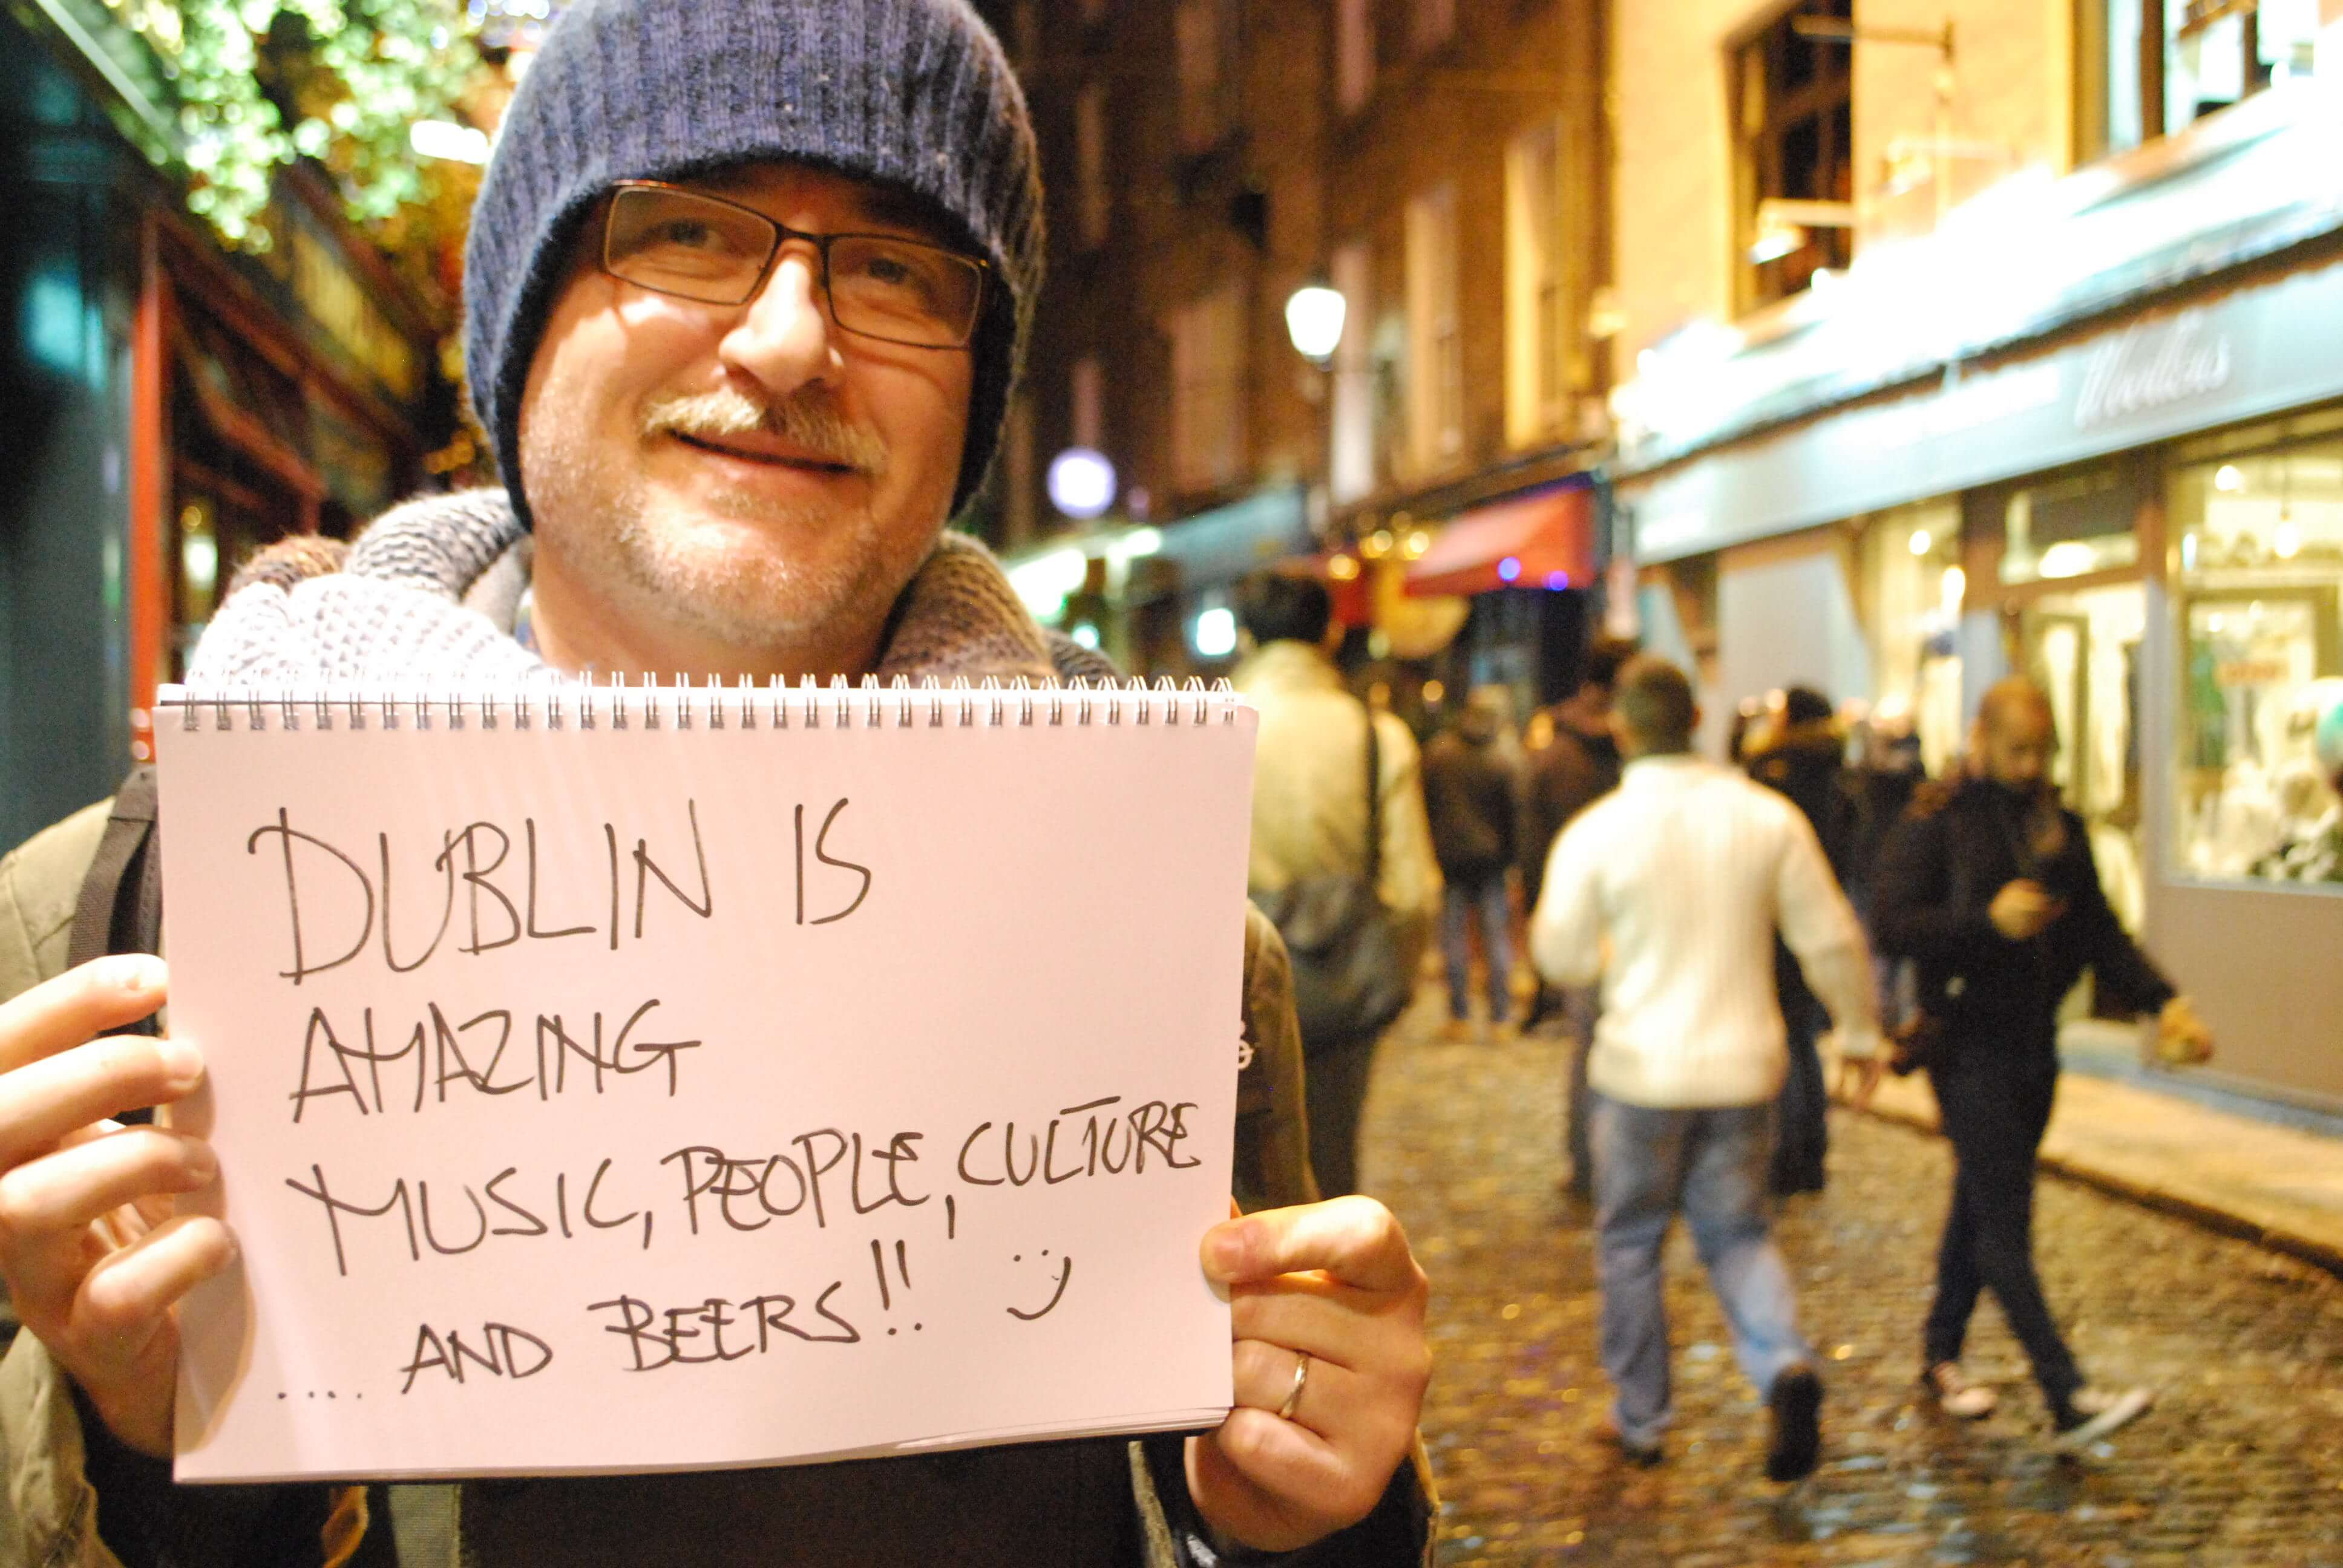 DUBLIN IS
AMAZING
MUSIC, PEOPLE, CULTURE
.... AND BEERS!! :)